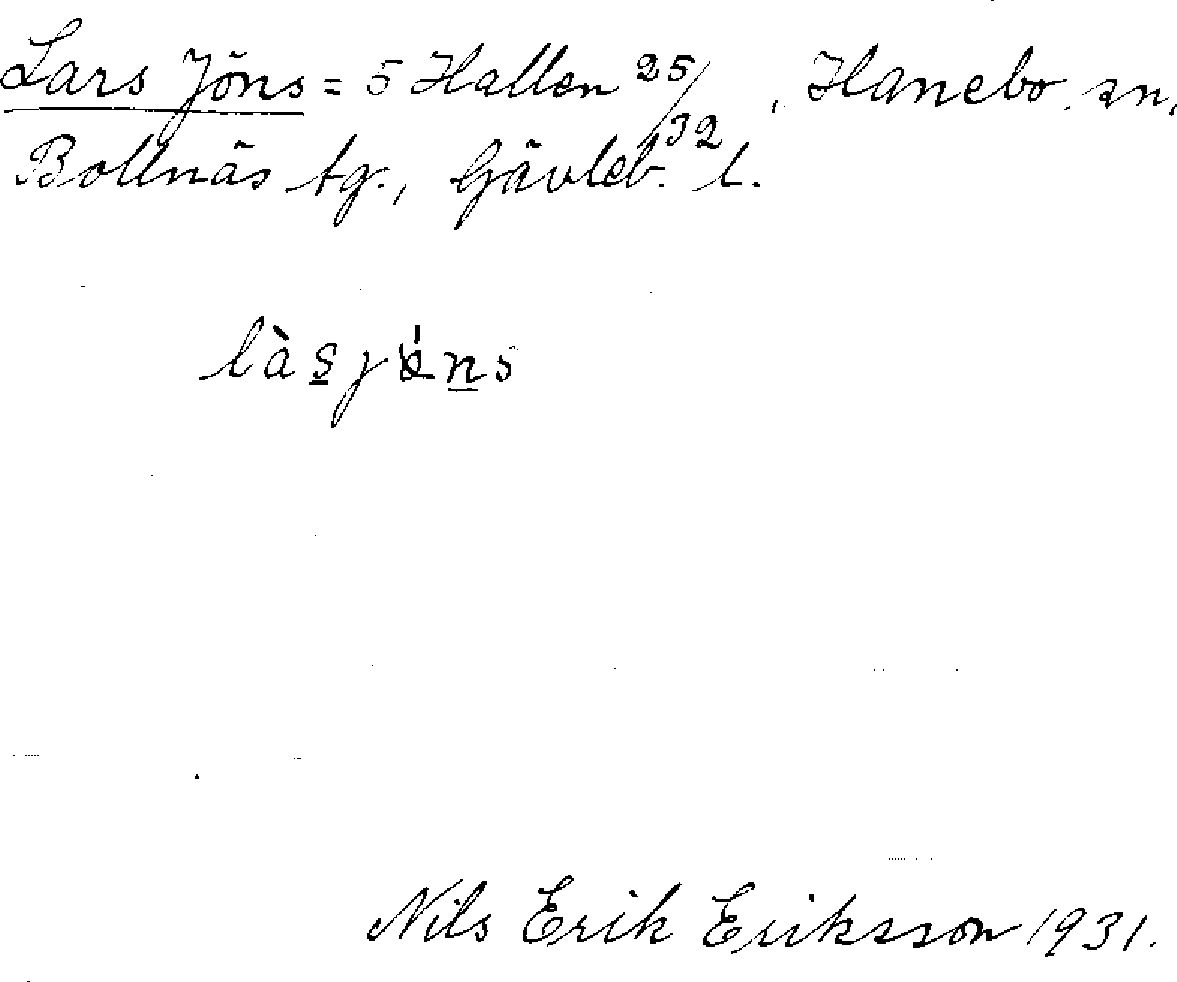 Lars Jöns = 5 Hallen 25/32, Hanebo sn,
Bollnäs tg., Gävleb. l.
Nils Erik Eriksson 1931.